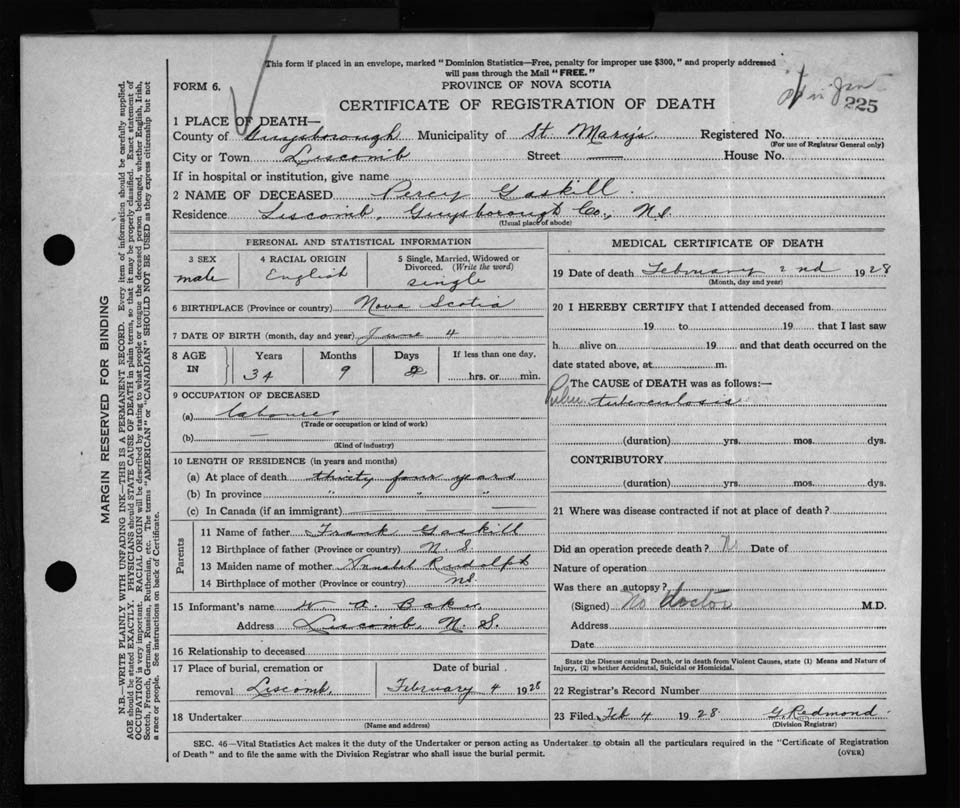 This form if placed in an envelope, marked "Dominion Statistics—Free, penalty for improper use $300," and properly addressed
will pass through the Mail "FREE."
FORM 6.
PROVINCE OF NOVA SCOTIA
CERTIFICATE OF REGISTRATION OF DEATH
in Jan
225
1 PLACE OF DEATH—
County of Guysborough Municipality of St. Mary's Registered No.
(For use of Registrar General only)
City or Town Liscomb Street — House No.
If in hospital or institution, give name
2 NAME OF DECEASED Percy Gaskill.
Residence Liscomb, Guysborough Co., N.S.
(Usual place of abode)
PERSONAL AND STATISTICAL INFORMATION
3 SEX 4 RACIAL ORIGIN 5 Single, Married, Widowed or Divorced. (Write the word)
male English single
6 BIRTHPLACE (Province or country) Nova Scotia
7 DATE OF BIRTH (month, day and year) June 4
8 AGE IN Years Months Days If less than one day,
34 9 hrs. or min.
9 OCCUPATION OF DECEASED
(a) Labourer
(Trade or occupation or kind of work)
(b) —
(Kind of industry)
10 LENGTH OF RESIDENCE (in years and months)
(a) At place of death thirty four years
(b) In province " " "
(c) In Canada (if an immigrant) —
Parents
11 Name of father Frank Gaskill
12 Birthplace of father (Province or country) N.S.
13 Maiden name of mother Annabel Rudolph
14 Birthplace of mother (Province or country) NS.
15 Informant's name W. A. Baker
Address Liscomb, N.S.
16 Relationship to deceased
17 Place of burial, cremation or Date of burial
removal Liscomb, February 4 1928
18 Undertaker
(Name and address)
MEDICAL CERTIFICATE OF DEATH
19 Date of death February 2nd 1928
(Month, day and year)
20 I HEREBY CERTIFY that I attended deceased from
19 to 19 that I last saw
h alive on 19 and that death occurred on the
date stated above, at m.
The CAUSE of DEATH was as follows:—
tuberculosis
(duration) yrs. mos. dys.
CONTRIBUTORY
(duration) yrs. mos. dys.
21 Where was disease contracted if not at place of death?
Did an operation precede death? N Date of
Nature of operation
Was there an autopsy?
(Signed) No doctor M.D.
Address
Date
State the Disease causing Death, or in death from Violent Causes, state (1) Means and Nature of
Injury, (2) whether Accidental, Suicidal or Homicidal.
22 Registrar's Record Number
23 Filed Feb 4 1928 G. Redmond
(Division Registrar)
SEC. 46—Vital Statistics Act makes it the duty of the Undertaker or person acting as Undertaker to obtain all the particulars required in the "Certificate of Registration
of Death" and to file the same with the Division Registrar who shall issue the burial permit.
(OVER)
MARGIN RESERVED FOR BINDING
N.B.—WRITE PLAINLY WITH UNFADING INK—THIS IS A PERMANENT RECORD. Every item of information should be carefully supplied.
AGE should be stated EXACTLY. PHYSICIANS should STATE CAUSE OF DEATH in plain terms, so that it may be properly classified. Exact statement of
OCCUPATION is very important. RACIAL ORIGIN will be described by stating to what people or tongue the deceased person belonged, whether English, Irish,
Scotch, French, German, Russian, Ruthenian, etc. The terms "AMERICAN" or "CANADIAN" SHOULD NOT BE USED as they express citizenship but not
a race or people. See instructions on back of Certificate.